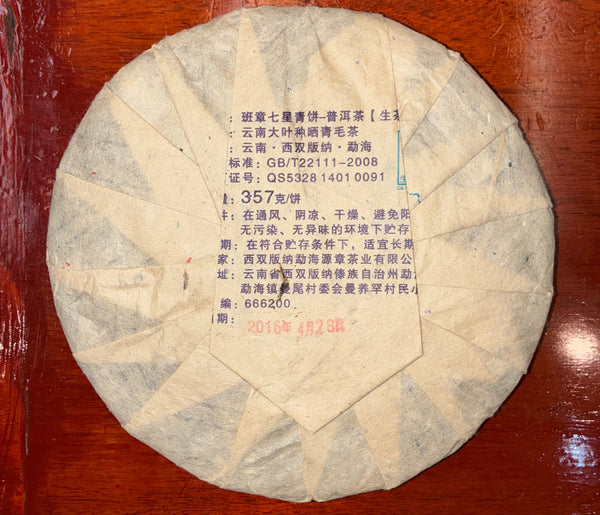 : 班章七星青饼–普洱茶【生茶
: 云南大叶种晒青毛茶
: 云南·西双版纳·勐海
标准: GB/T22111–2008
证号: QS5328 1401 0091
量: 357克/饼
件: 在通风、阴凉、干燥、避免阳
无污染、无异味的环境下贮存
期: 在符合贮存条件下，适宜长期
家: 西双版纳勐海源章茶业有限公
址: 云南省西双版纳傣族自治州勐
勐海镇曼尾村委会曼养罕村民小
编: 666200
期: 2016年 4月28日